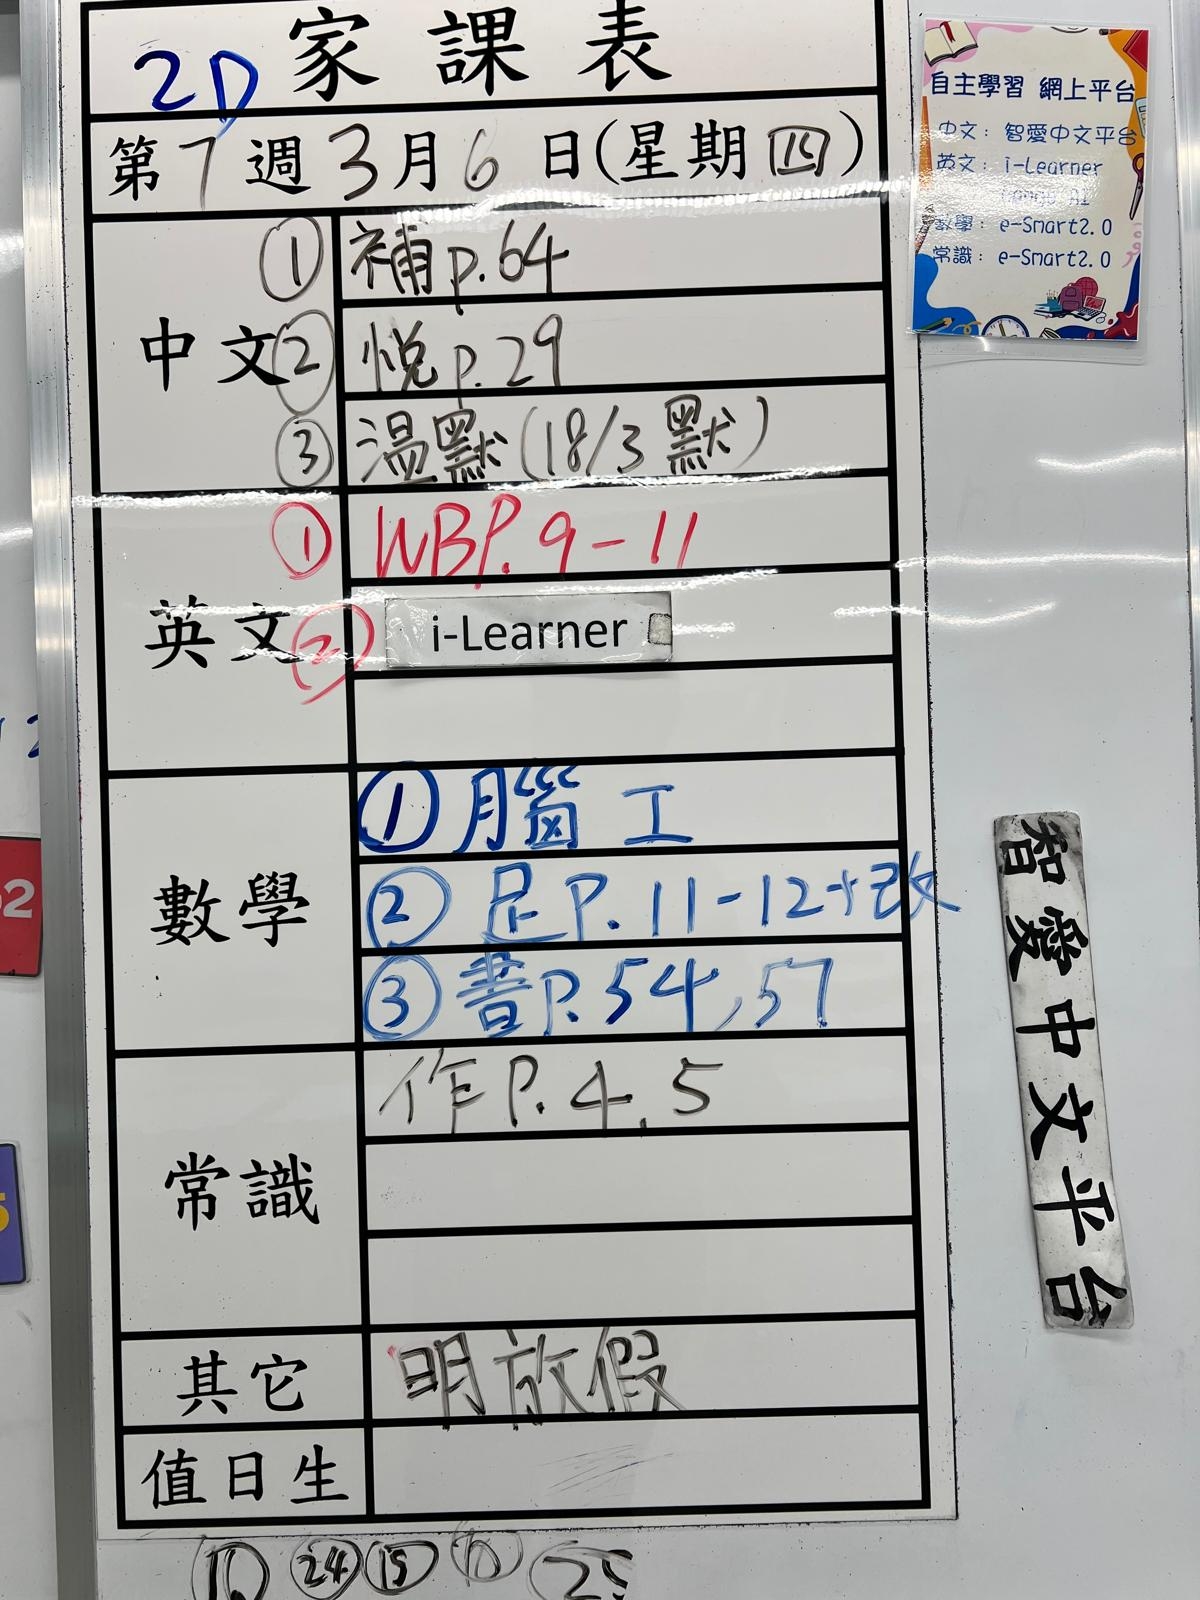 2D 家課表
第7週3月6日(星期四)
中文
① 補p.64
② 悅p.29
③ 温默(18/3默)
英文
① WBP.9-11
② i-Learner
數學
① 腦工
② 足P.11-12+改
③ 書P.54,57
常識
作P.4,5
其它
明放假
值日生
24 15
自主學習 網上平台
中文：智愛中文平台
英文：i-Learner
數學：e-Smart2.0
常識：e-Smart2.0
智愛中文平台